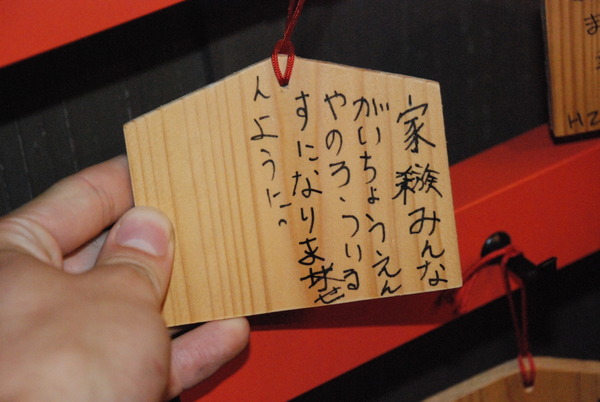 家族みんな
がいちょうえん
やのろ、ういる
すになりませ
んように。
HZ